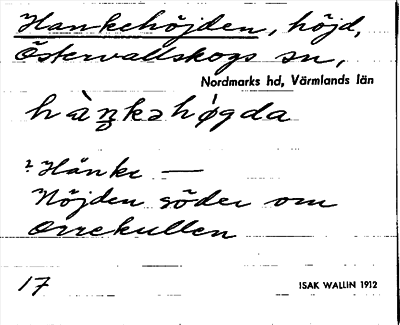 Hankehöjden, höjd,
Östervallskogs sn,
Nordmarks hd, Värmlands län
hàŋkəhǿgda
? Hänke —
Höjden söder om
Orrekullen
17 ISAK WALLIN 1912